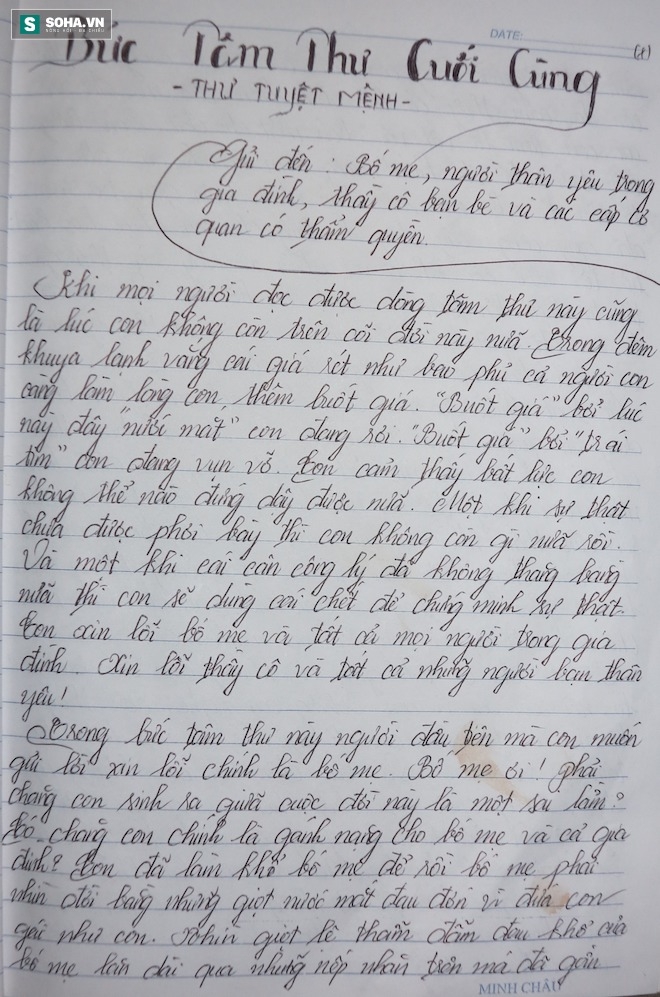 S SOHA.VN
DATE:
(1)
Bức Tâm Thư Cuối Cùng
- THƯ TUYỆT MỆNH -
Gửi đến : Bố mẹ, người thân yêu trong
gia đình, thầy cô bạn bè và các cấp cơ
quan có thẩm quyền.
Khi mọi người đọc được dòng tâm thư này cũng
là lúc con không còn trên cõi đời này nữa. Trong đêm
khuya lạnh vắng cái giá rét như bao phủ cả người con
càng làm lòng con thêm buốt giá. "Buốt giá" bởi lúc
này đây "nước mắt" con đang rơi. "Buốt giá" bởi "trái
tim" con đang vụn vỡ. Con cảm thấy bất lực con
không thể nào đứng dậy được nữa. Một khi sự thật
chưa được phơi bày thì con không còn gì nữa rồi.
Và một khi cái cân công lý đã không thăng bằng
nữa thì con sẽ dùng cái chết để chứng minh sự thật.
Con xin lỗi bố mẹ và tất cả mọi người trong gia
đình. Xin lỗi thầy cô và tất cả những người bạn thân
yêu!
Trong bức tâm thư này người đầu tiên mà con muốn
gửi lời xin lỗi chính là bố mẹ. Bố mẹ ơi! phải
chăng con sinh ra giữa cuộc đời này là một sai lầm?
Có chăng con chính là gánh nặng cho bố mẹ và cả gia
đình? Con đã làm khổ bố mẹ để rồi bố mẹ phải
nhìn đời bằng những giọt nước mắt đau đớn vì đứa con
gái như con. Nhìn giọt lệ thấm đẫm đau khổ của
bố mẹ lăn dài qua những nếp nhăn trên má đã gần
MINH CHÂU